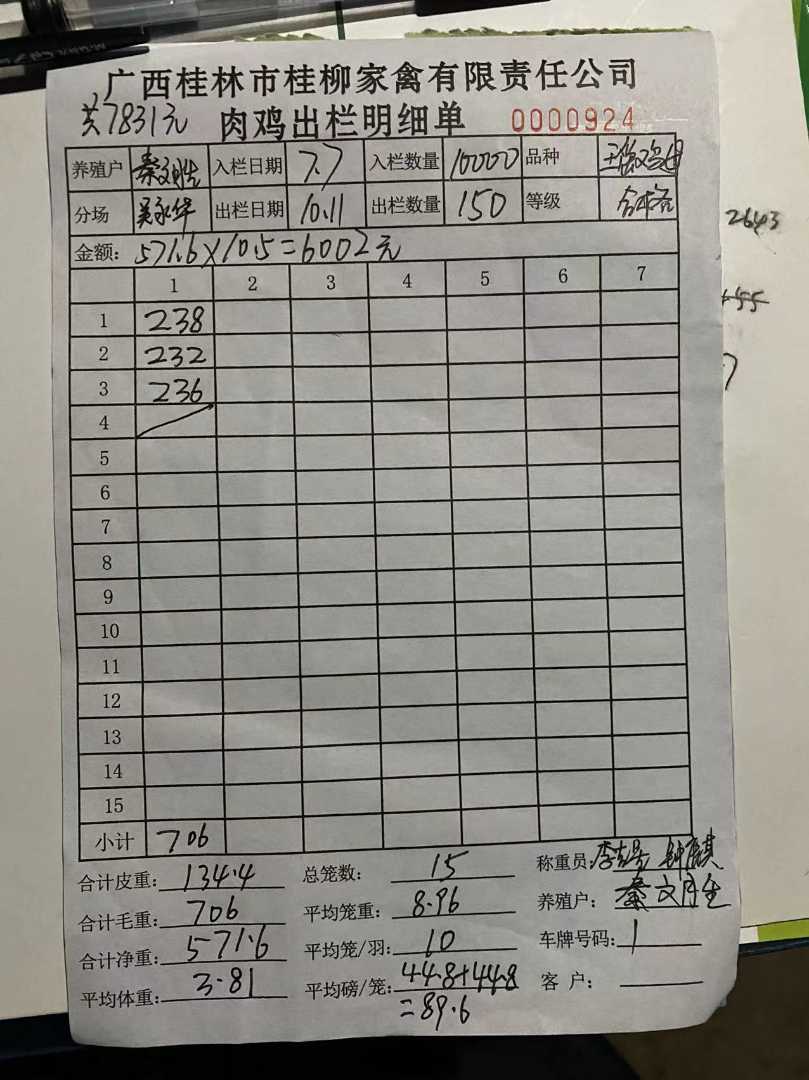 广西桂林市桂柳家禽有限责任公司
共7831元 肉鸡出栏明细单 0000924
养殖户 秦文胜 入栏日期 7.7 入栏数量 10000 品种
分场 吴永华 出栏日期 10.11 出栏数量 150 等级 合格
金额: 571.6×10.5=6002元
1 2 3 4 5 6 7
1 238
2 232
3 236
4
5
6
7
8
9
10
11
12
13
14
15
小计 706
合计皮重: 134.4 总笼数: 15 称重员:
合计毛重: 706 平均笼重: 8.96 养殖户: 秦文胜
合计净重: 571.6 平均笼/羽: 10 车牌号码: 1
平均体重: 3.81 平均磅/笼: 44.8+44.8 客 户:
=89.6
2643